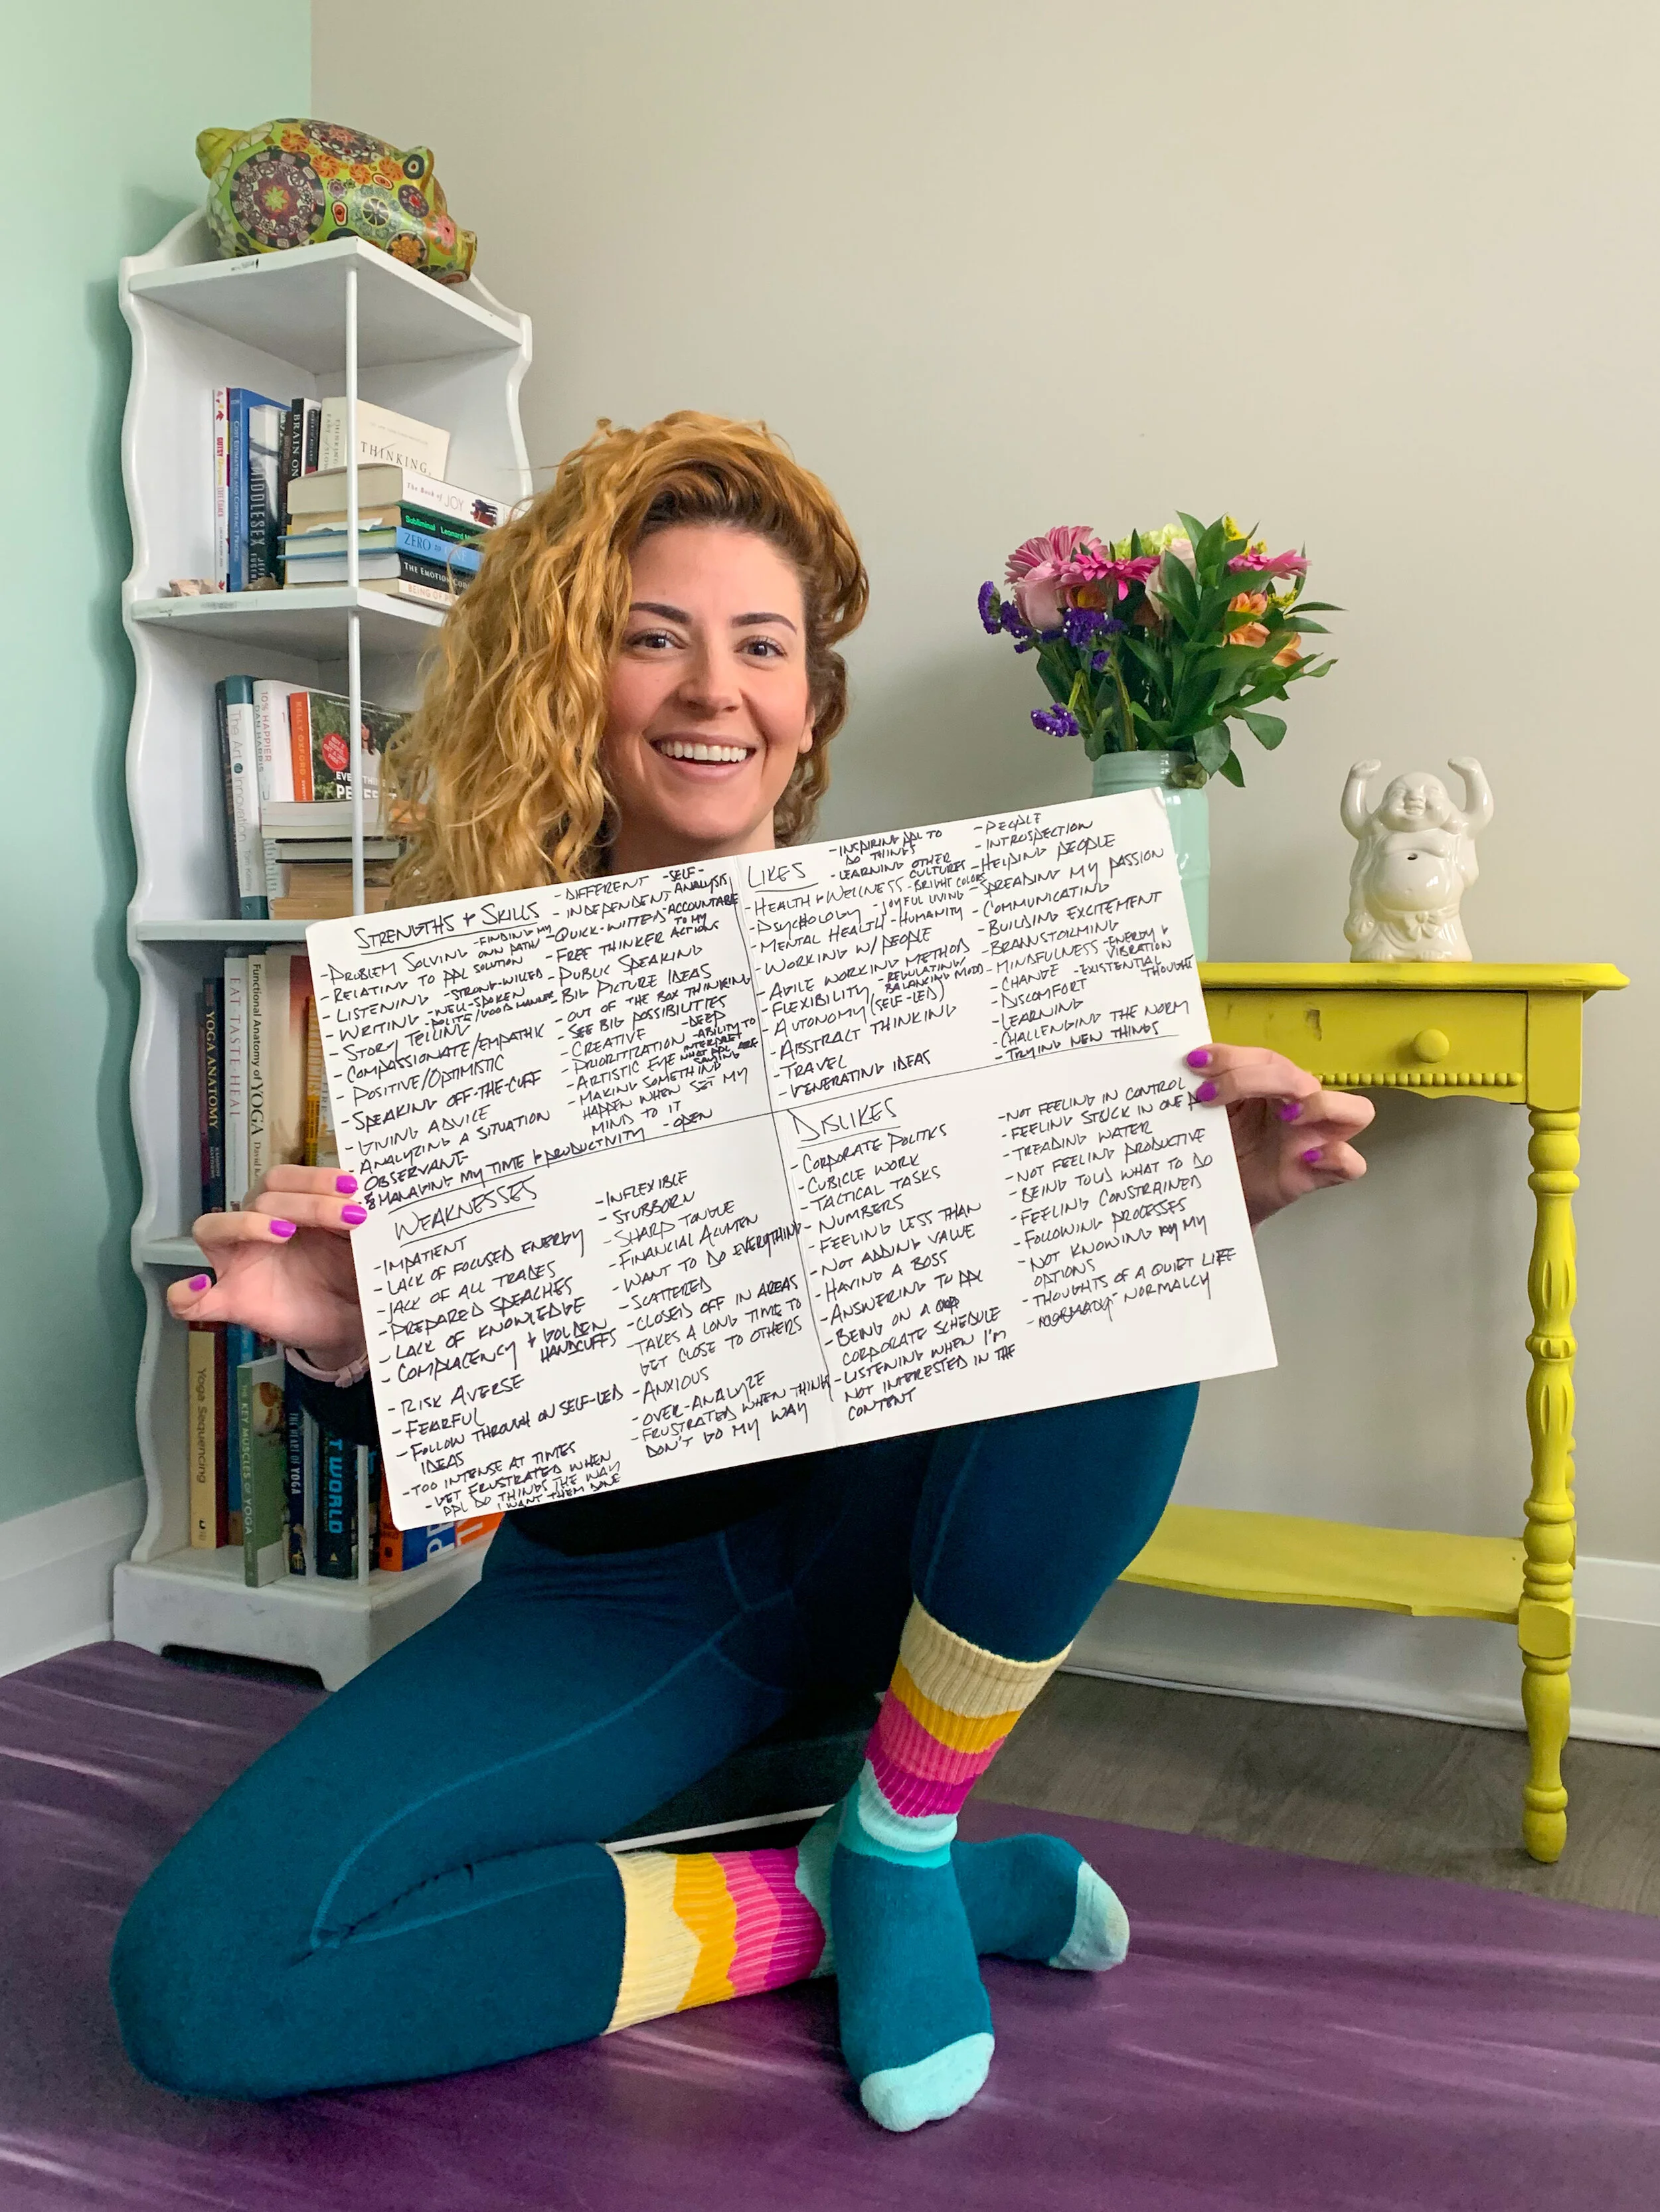 STRENGTHS + SKILLS
- DIFFERENT
- SELF-ANALYSIS
- INDEPENDENT
- FINDING MY OWN PATH
- QUICK-WITTED
- ACCOUNTABLE TO MY ACTIONS
- PROBLEM SOLVING
- FREE THINKER
- RELATING TO PPL
SOLUTION
- PUBLIC SPEAKING
- LISTENING
- STRONG-WILLED
- BIG PICTURE IDEAS
- WRITING
- WELL-SPOKEN
- POLITE/GOOD MANNER
- OUT OF THE BOX THINKING
- STORY TELLING
- SEE BIG POSSIBILITIES
- COMPASSIONATE/EMPATHIC
- CREATIVE
- DEEP
- POSITIVE/OPTIMISTIC
- PRIORITIZATION
- ABILITY TO INTERPRET WHAT PPL ARE SAYING
- SPEAKING OFF-THE-CUFF
- ARTISTIC EYE
- GIVING ADVICE
- MAKING SOMETHING
HAPPEN WHEN SET MY
MIND TO IT
- ANALYZING A SITUATION
- OBSERVANT
- OPEN
- MANAGING MY TIME + PRODUCTIVITY
LIKES
- INSPIRING PPL TO
DO THINGS
- LEARNING OTHER
CULTURES
- HEALTH + WELLNESS
- BRIGHT COLORS
- PSYCHOLOGY
- JOYFUL LIVING
- MENTAL HEALTH
- HUMANITY
- WORKING W/ PEOPLE
- AGILE WORKING METHOD
- FLEXIBILITY
- REGULATING/
BALANCING MOOD
- AUTONOMY (SELF-LED)
- ABSTRACT THINKING
- TRAVEL
- GENERATING IDEAS
- PEOPLE
- INTROSPECTION
- HELPING PEOPLE
- SPREADING MY PASSION
- COMMUNICATING
- BUILDING EXCITEMENT
- BRAINSTORMING
- MINDFULNESS
- ENERGY +
VIBRATION
- CHANGE
- EXISTENTIAL
THOUGHT
- DISCOMFORT
- LEARNING
- CHALLENGING THE NORM
- TRYING NEW THINGS
WEAKNESSES
- IMPATIENT
- LACK OF FOCUSED ENERGY
- JACK OF ALL TRADES
- PREPARED SPEACHES
- LACK OF KNOWLEDGE
- COMPLACENCY + GOLDEN
HANDCUFFS
- RISK AVERSE
- FEARFUL
- FOLLOW THROUGH ON SELF-LED
IDEAS
- TOO INTENSE AT TIMES
- GET FRUSTRATED WHEN
PPL DO THINGS THE WAY
I WANT THEM DONE
- INFLEXIBLE
- STUBBORN
- SHARP TONGUE
- FINANCIAL ACUMEN
- WANT TO DO EVERYTHING
- SCATTERED
- CLOSED OFF IN AREAS
- TAKES A LONG TIME TO
GET CLOSE TO OTHERS
- ANXIOUS
- OVER-ANALYZE
- FRUSTRATED WHEN THINK
DON'T GO MY WAY
DISLIKES
- CORPORATE POLITICS
- CUBICLE WORK
- TACTICAL TASKS
- NUMBERS
- FEELING LESS THAN
- NOT ADDING VALUE
- HAVING A BOSS
- ANSWERING TO PPL
- BEING ON A
CORPORATE SCHEDULE
- LISTENING WHEN I'M
NOT INTERESTED IN THE
CONTENT
- NOT FEELING IN CONTROL
- FEELING STUCK IN ONE
- TREADING WATER
- NOT FEELING PRODUCTIVE
- BEING TOLD WHAT TO DO
- FEELING CONSTRAINED
- FOLLOWING PROCESSES
- NOT KNOWING MY
OPTIONS
- THOUGHTS OF A QUIET LIFE
- NORMALCY
BRAIN ON
MIDDLESEX
THINKING,
The Book of JOY
Subliminal
ZERO
THE EMOTION CODE
The Art of Innovation
10% HAPPIER
DAN HARRIS
KELLY OXFORD
YOGA ANATOMY
EAT TASTE HEAL
Functional Anatomy of YOGA
Yoga Sequencing
THE KEY MUSCLES OF YOGA
THE HEART OF YOGA